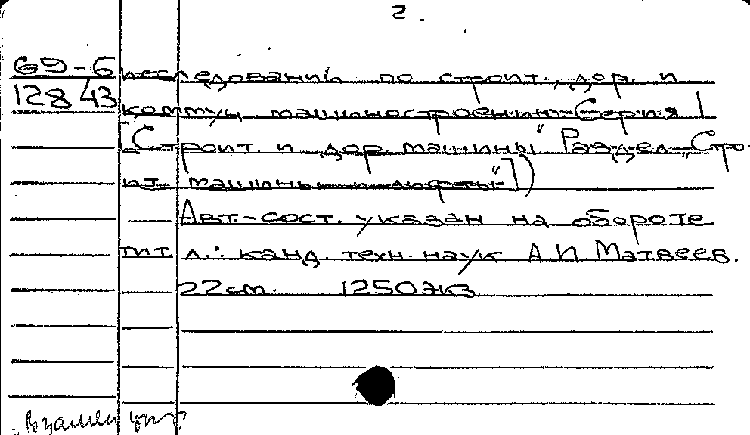 2.
69-5 исследований по строит., дор. и
12843 коммун. машиностроению. Серия I
["Строит. и дор. машины" Раздел "Стро-
ит. машины и лифты"])
Авт.-сост. указан на обороте
тит. л.: канд. техн. наук А.И. Матвеев.
22 см. 1250 экз
Взамен